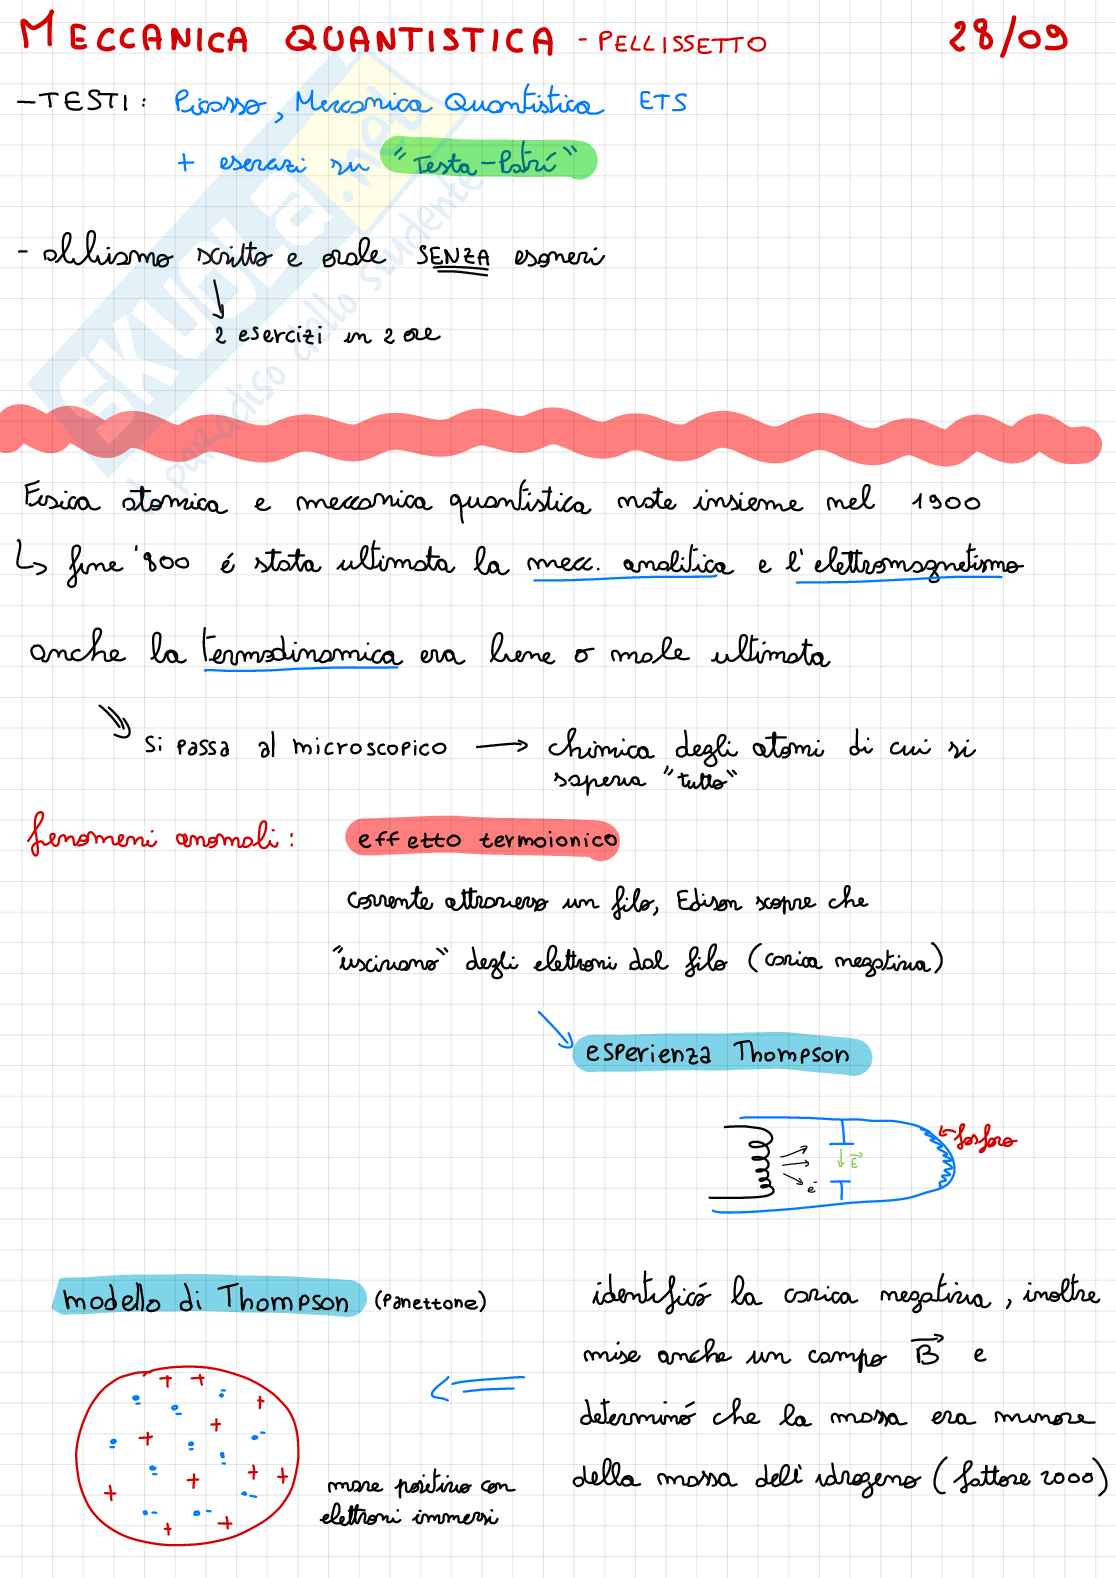 MECCANICA QUANTISTICA - PELLISSETTO 28/09
- TESTI: Picasso, Meccanica Quantistica ETS
+ esercizi su "Testa-Patrí"
- abbiamo scritto e orale SENZA esoneri
2 esercizi in 2 ore
SKUOLA.net
paradiso dello studente
Fisica atomica e meccanica quantistica nate insieme nel 1900
↳ fine '800 é stata ultimata la mecc. analitica e l'elettromagnetismo
anche la termodinamica era bene o male ultimata
si passa al microscopico → chimica degli atomi di cui si
sapeva "tutto"
fenomeni anomali: effetto termoionico
corrente attraverso un filo, Edison scopre che
"uscivano" degli elettroni dal filo (carica negativa)
esperienza Thompson
fosforo
E
e-
modello di Thompson (Panettone)
identificó la carica negativa, inoltre
mise anche un campo B e
determinó che la massa era minore
della massa dell'idrogeno (fattore 2000)
mare positivo con
elettroni immersi